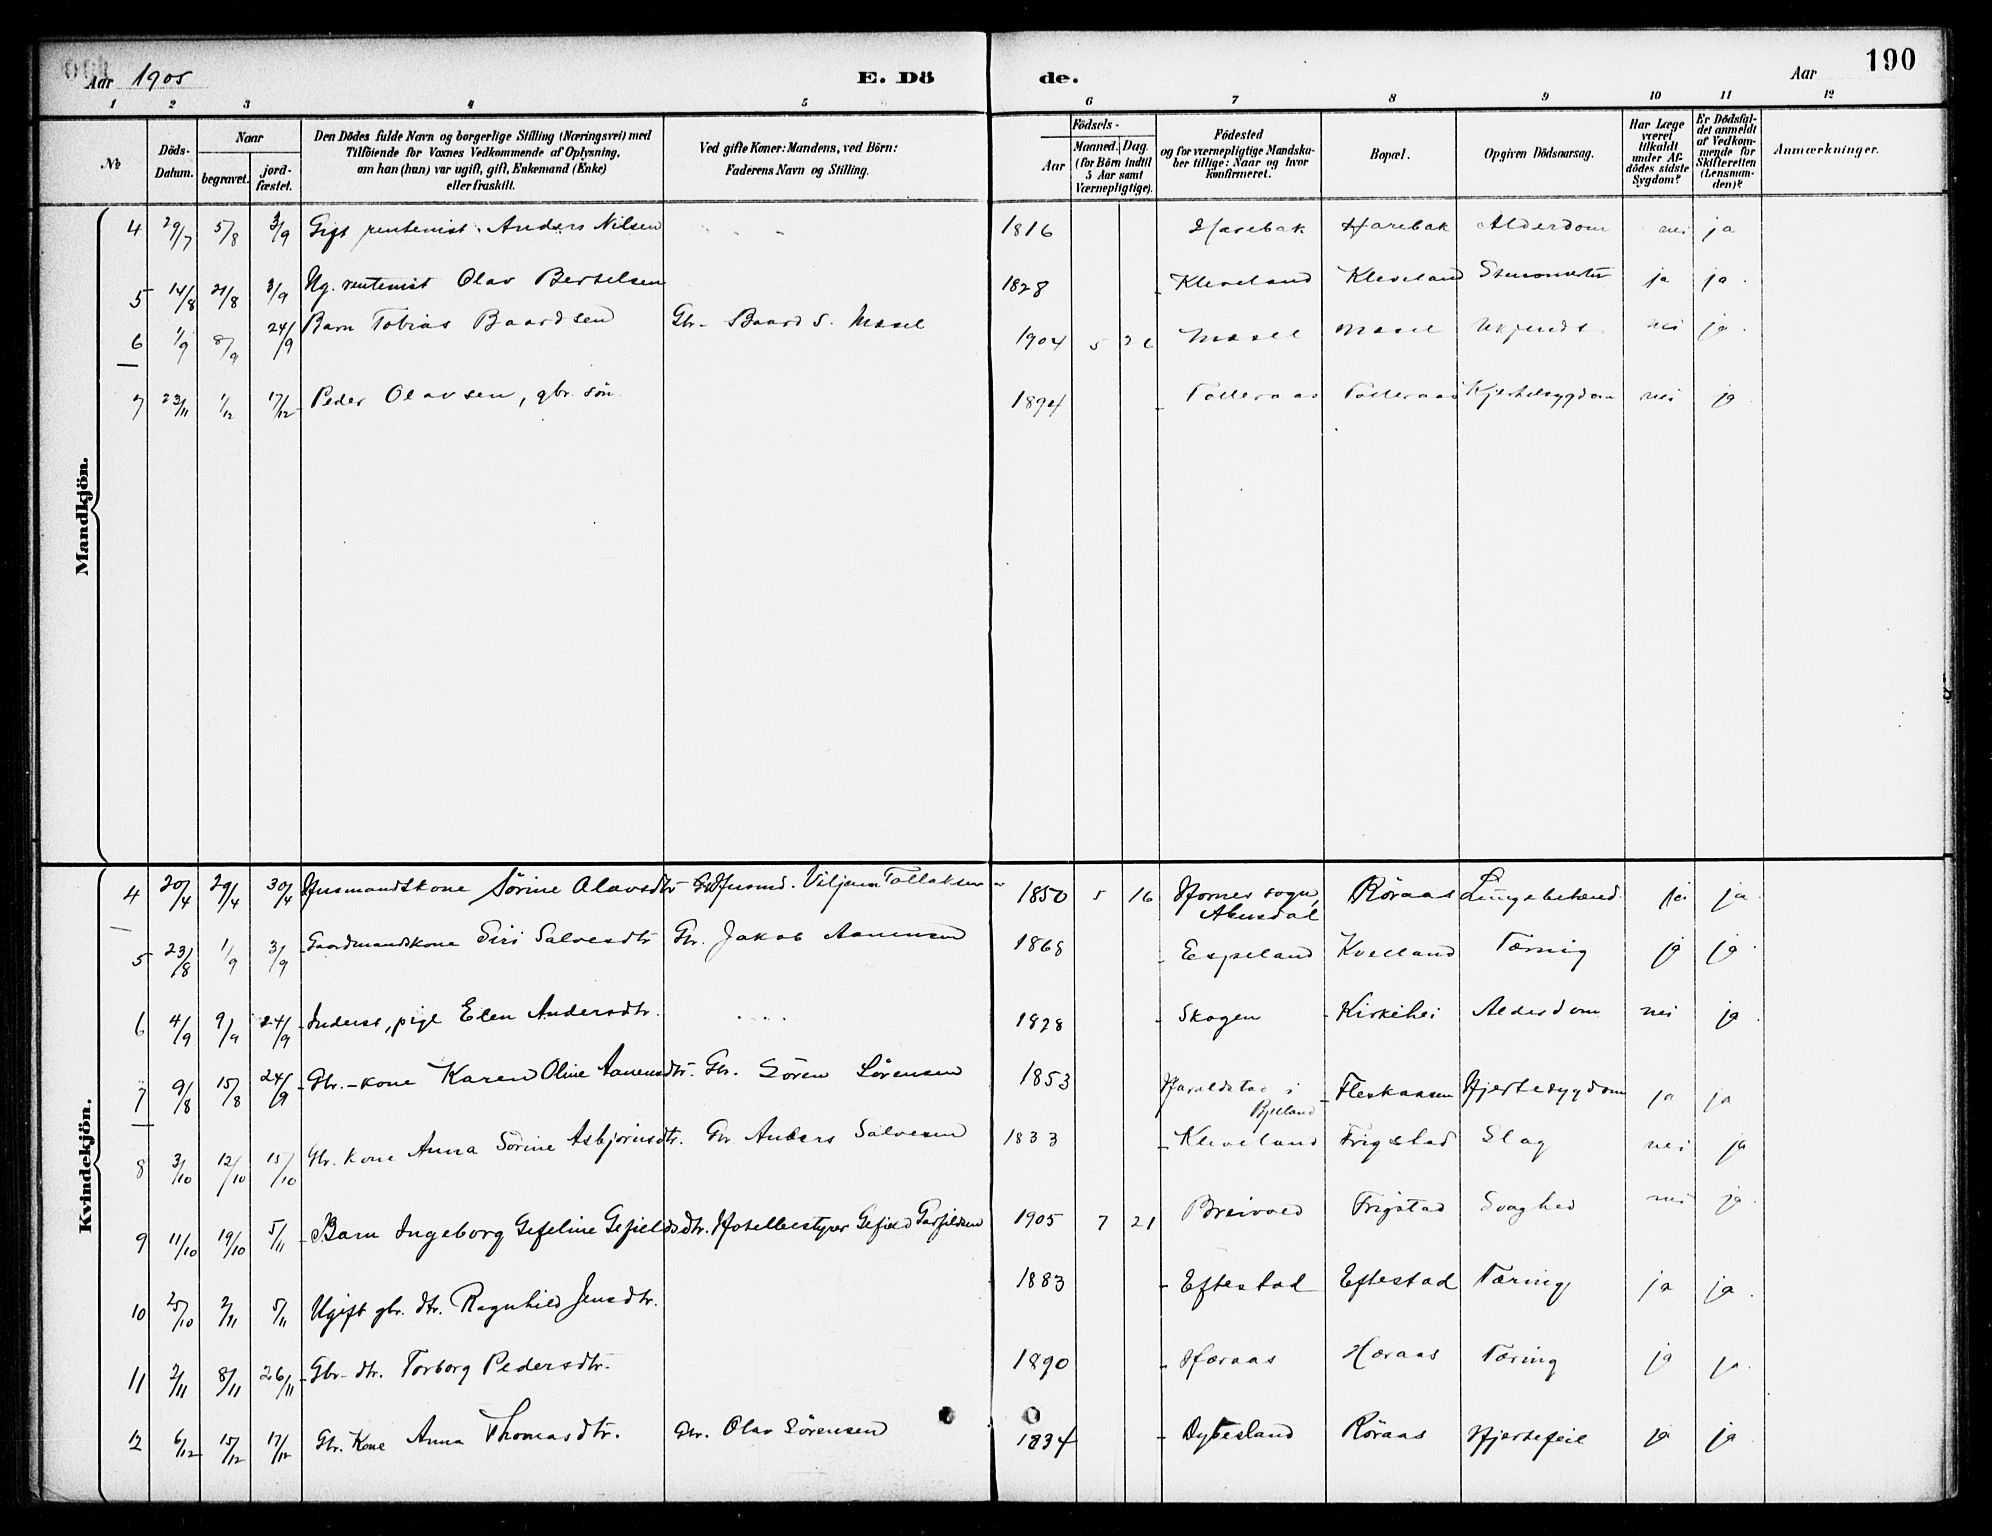 Aar 1905 E. Dö de. Aar 190
1 2 3 4 5 6 7 8 9 10 11 12
№ Döds-Datum. Naar begravet. jordfæstet. Den Dödes fulde Navn og borgerlige Stilling (Næringsvei) med Tilföiende for Voxnes Vedkommende af Oplysning, om han (hun) var ugift, gift, Enkemand (Enke) eller fraskilt. Ved gifte Koner: Mandens, ved Börn: Faderens Navn og Stilling. Födsels- Aar Maaned. Dag. (for Börn indtil 5 Aar samt Værnepligtige). Födested og for værnepligtige Mandskaber tillige: Naar og hvor konfirmeret. Bopæl. Opgiven Dödsaarsag. Har Læge været tilkaldt under Afdödes sidste Sygdom? Er Dödsfaldet anmeldt af Vedkommende for Skifteretten (Lensmanden)? Anmærkninger.
Mandkjön.
4 29/7 5/8 3/9 Gift rentenist. Anders Nilsen 1816 Harebak Harebak Alderdom nei ja
5 14/8 21/8 3/9 Ug. rentenist Olav Bertelsen 1828 Kleveland Kleveland ja ja
6 1/9 8/9 24/9 Barn Tobias Baardsen Gbr. Baard S. Mosel 1904 5 26 Mosel Mosel Ukjendt nei ja
7 23/11 1/12 17/12 Peder Olavsen, gbr. sön 1894 Tolleraas Tolleraas Kjertelsygdom nei ja
Kvindekjön.
4 20/4 29/4 30/4 Husmandskone Sörine Olavsdtr Husmd. Viljam Tollaksen 1850 5 16 Hornes sogn, Abusdal Röraas Lungebetænd. ja ja
5 23/8 1/9 3/9 Gaardmandskone Siri Salvesdtr Gbr. Jakob Aanensen 1868 Espeland Kvelland Tæring ja ja
6 4/9 9/9 24/9 Inderst, pige Elen Andersdtr. 1828 Skogen Kirkehei Alderdom nei ja
7 9/8 15/8 24/9 Gbr.-kone Karen Oline Aanensdtr. Gbr. Sören Sörensen 1853 Haraldstad i Bjelland Fleskaasen Hjertesygdom ja ja
8 3/10 12/10 15/10 Gbr. kone Anna Sörine Asbjörnsdtr. Gbr Anders Salvesen 1833 Kleveland Frigstad Slag nei ja
9 11/10 19/10 5/11 Barn Ingeborg Gefeline Gefieldsdtr. Hotelbestyrer Gefield Garfieldsen 1905 7 21 Breivold Frigstad Svaghed nei ja
10 25/10 2/11 5/11 Ugift gbr. dtr. Ragnhild Jensdtr. 1883 Eftestad Eftestad Tæring ja ja
11 2/11 8/11 26/11 Gbr-dtr. Torborg Pedersdtr. 1890 Høraas Høraas Tæring ja ja
12 6/12 15/12 17/12 Gbr. Kone Anna Thomasdtr. Gbr. Olav Sörensen 1834 Dybesland Röraas Hjertefeil ja ja